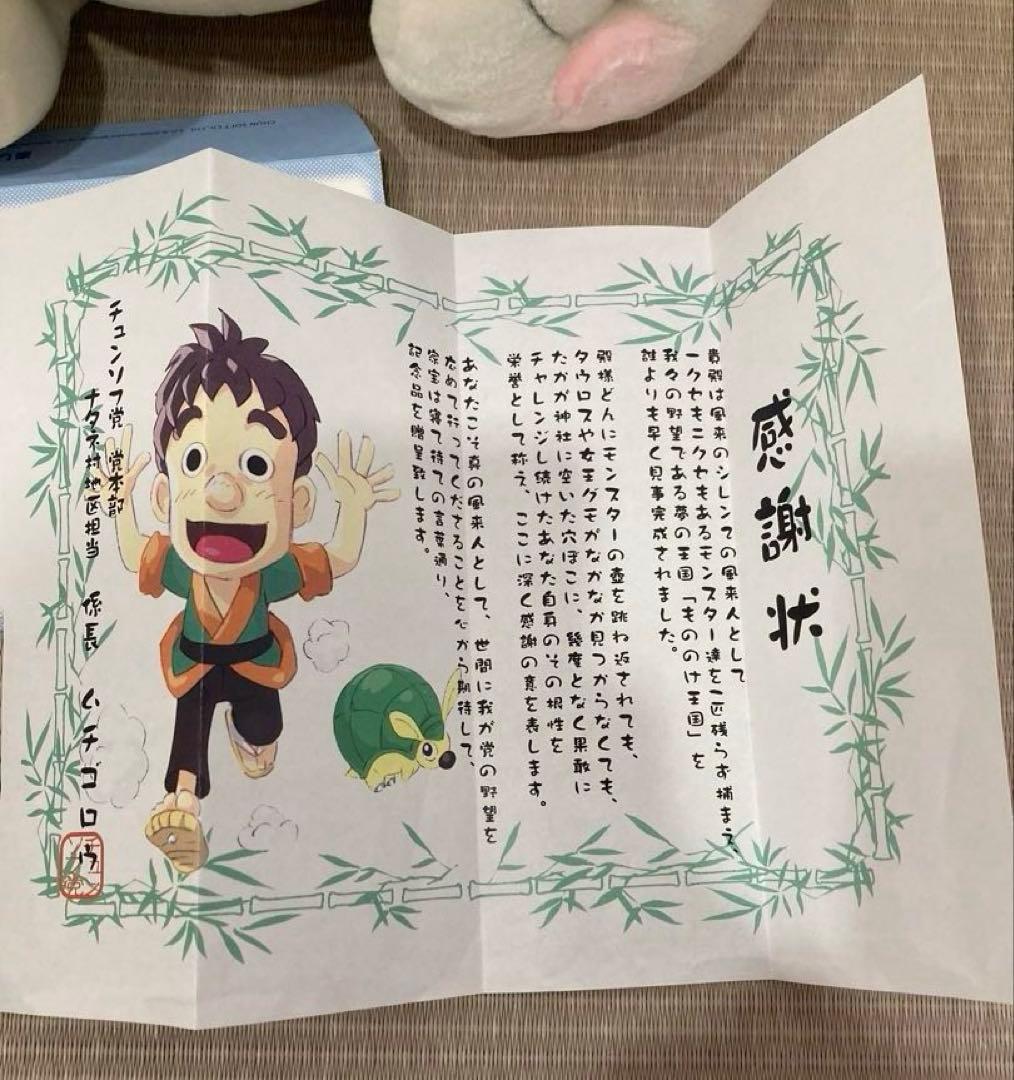 感謝状
貴殿は風来のシレン2の風来人として
一クセもニクセもあるモンスター達を一匹残らず捕まえ、
我々の野望である夢の王国「もののけ王国」を
誰よりも早く見事完成されました。
殿様どんにモンスターの壺を跳ね返されても、
タウロスや女王グモがなかなか見つからなくても、
たかが神社に空いた穴ぼこに、幾度となく果敢に
チャレンジし続けたあなた自身のその根性を
栄誉として称え、ここに深く感謝の意を表します。
あなたこそ真の風来人として、世間に我が党の野望を
なめて行ってくださることを心から期待して、
家宝は寝て待ての言葉通り、
記念品を贈呈致します。
チュンソフ党 党本部
ナタネ村地区担当 係長 ムチゴロウ
CHUN SOFT CO., LTD.